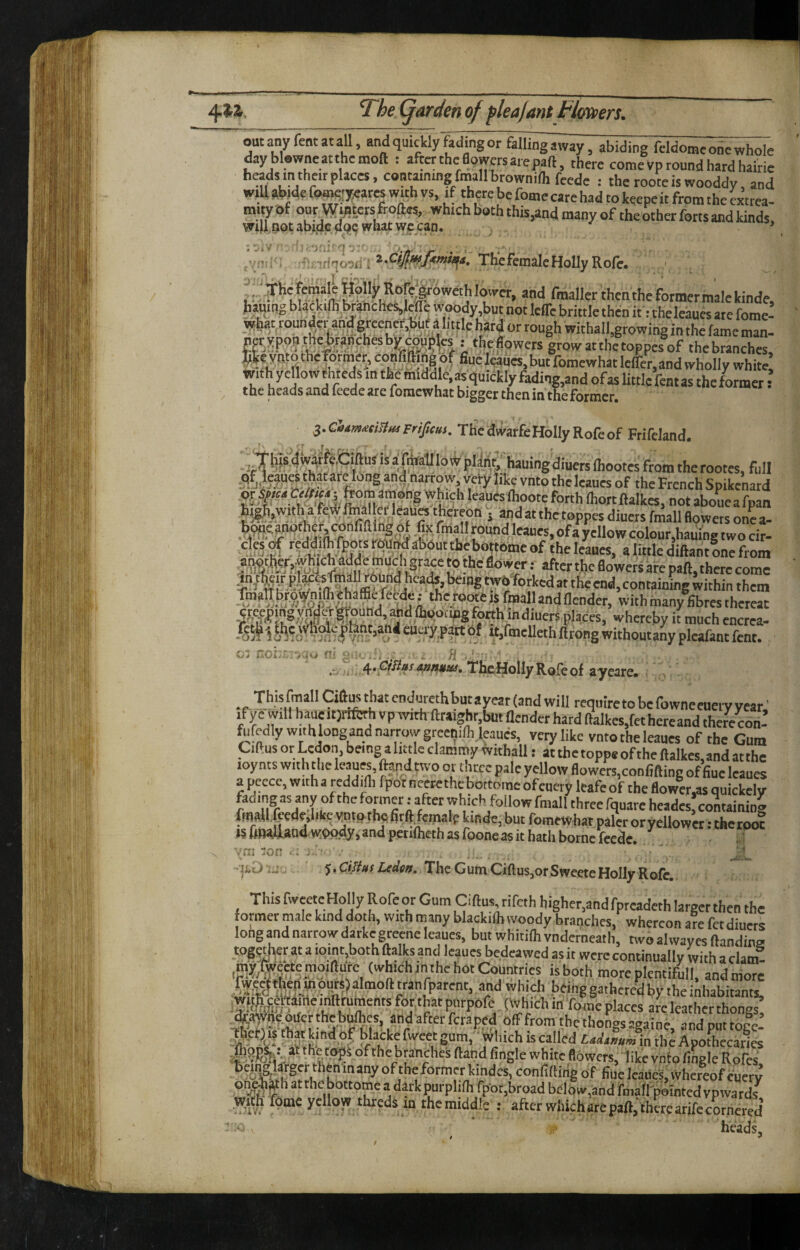 422 The Garden of pleaſant Flowers.
out any ſent at all, and quickly fading or falling away, abiding ſeldome one whole
day blowne at the moſt : after the flowers are paſt, there come vp round hard hairie
heads in their places, containing ſmall browniſh ſeede : the roote is wooddy, and
will abide ſome yeares with vs, if there be ſome care had to keepe it from the extrea-
mity of our Winters froſtes, which both this,and many of the other ſorts and kinds,
will not abide doe what we can.
2. Ciſtus fæmina. The female Holly Roſe.
The female Holly Roſe groweth lower, and ſmaller then the former male kinde,
hauing blackiſh branches,leſſe woody,but not leſſe brittle then it : the leaues are ſome-
what rounder and greener,but a little hard or rough withall,growing in the ſame man-
ner vpon the branches by couples : the flowers grow at the toppes of the branches,
like vnto the former, conſiſting of fiue leaues, but ſomewhat leſſer,and wholly white,
with yellow threds in the middle,as quickly fading,and of as little ſent as the former :
the heads and ſeede are ſomewhat bigger then in the former.
3. Chamæciſtus Friſicus. The dwarfe Holly Roſe of Friſeland.
This dwarfe Ciſtus is a ſmall low plant, hauing diuers ſhootes from the rootes, full
of leaues that are long and narrow, very like vnto the leaues of the French Spikenard
or Spica Celtica ; from among which leaues ſhoote forth ſhort ſtalkes, not aboue a ſpan
high,with a few ſmaller leaues thereon ; and at the toppes diuers ſmall flowers one a-
boue another, conſiſting of ſix ſmall round leaues, of a yellow colour,hauing two cir-
cles of reddiſh ſpots round about the bottome of the leaues, a little diſtant one from
another, which adde much grace to the flower : after the flowers are paſt, there come
in their places ſmall round heads, being two forked at the end, containing within them
ſmall browniſh chaffie ſeede : the roote is ſmall and ſlender, with many fibres thereat
creeping vnder ground, and ſhooting forth in diuers places, whereby it much encrea-
ſeth : the whole plant,and euery part of it,ſmelleth ſtrong without any pleaſant ſent.
4. Ciſtus annuus. The Holly Roſe of a yeare.
This ſmall Ciſtus that endureth but a year (and will require to be ſowne euery year,
if ye will haue it)riſeth vp with ſtraight,but ſlender hard ſtalkes,ſet here and there con-
fuſedly with long and narrow greeniſh leaues, very like vnto the leaues of the Gum
Ciſtus or Ledon, being a little clammy withall : at the toppe of the ſtalkes, and at the
ioynts with the leaues, ſtand two or three pale yellow flowers,conſiſting of fiue leaues
a peece, with a reddiſh ſpot neere the bottome of euery leafe of the flower,as quickely
fading as any of the former : after which follow ſmall three ſquare heades, containing
ſmall ſeede,like vnto the firſt female kinde, but ſomewhat paler or yellower : the root
is ſmall and woody, and periſheth as ſoone as it hath borne ſeede.
5. Ciſtus Ledon. The Gum Ciſtus,or Sweete Holly Roſe.
This ſweete Holly Roſe or Gum Ciſtus, riſeth higher,and ſpreadeth larger then the
former male kind doth, with many blackiſh woody branches, whereon are ſet diuers
long and narrow darke greene leaues, but whitiſh vnderneath, two alwayes ſtanding
together at a ioint,both ſtalks and leaues bedeawed as it were continually with a clam-
my ſweete moiſture (which in the hot Countries is both more plentifull, and more
ſweet then in ours) almoſt tranſparent, and which being gathered by the inhabitants,
with certaine inſtruments for that purpoſe (which in ſome places are leather thongs,
drawne ouer the buſhes, and after ſcraped off from the thongs againe, and put toge-
ther) is that kind of blacke ſweet gum, which is called Ladanum in the Apothecaries
ſhops : at the tops of the branches ſtand ſingle white flowers, like vnto ſingle Roſes,
being larger then in any of the former kindes, conſiſting of fiue leaues, whereof euery
one hath at the bottome a dark purpliſh ſpot,broad below,and ſmall pointed vpwards,
with ſome yellow threds in the middle : after which are paſt, there ariſe cornered
heads,